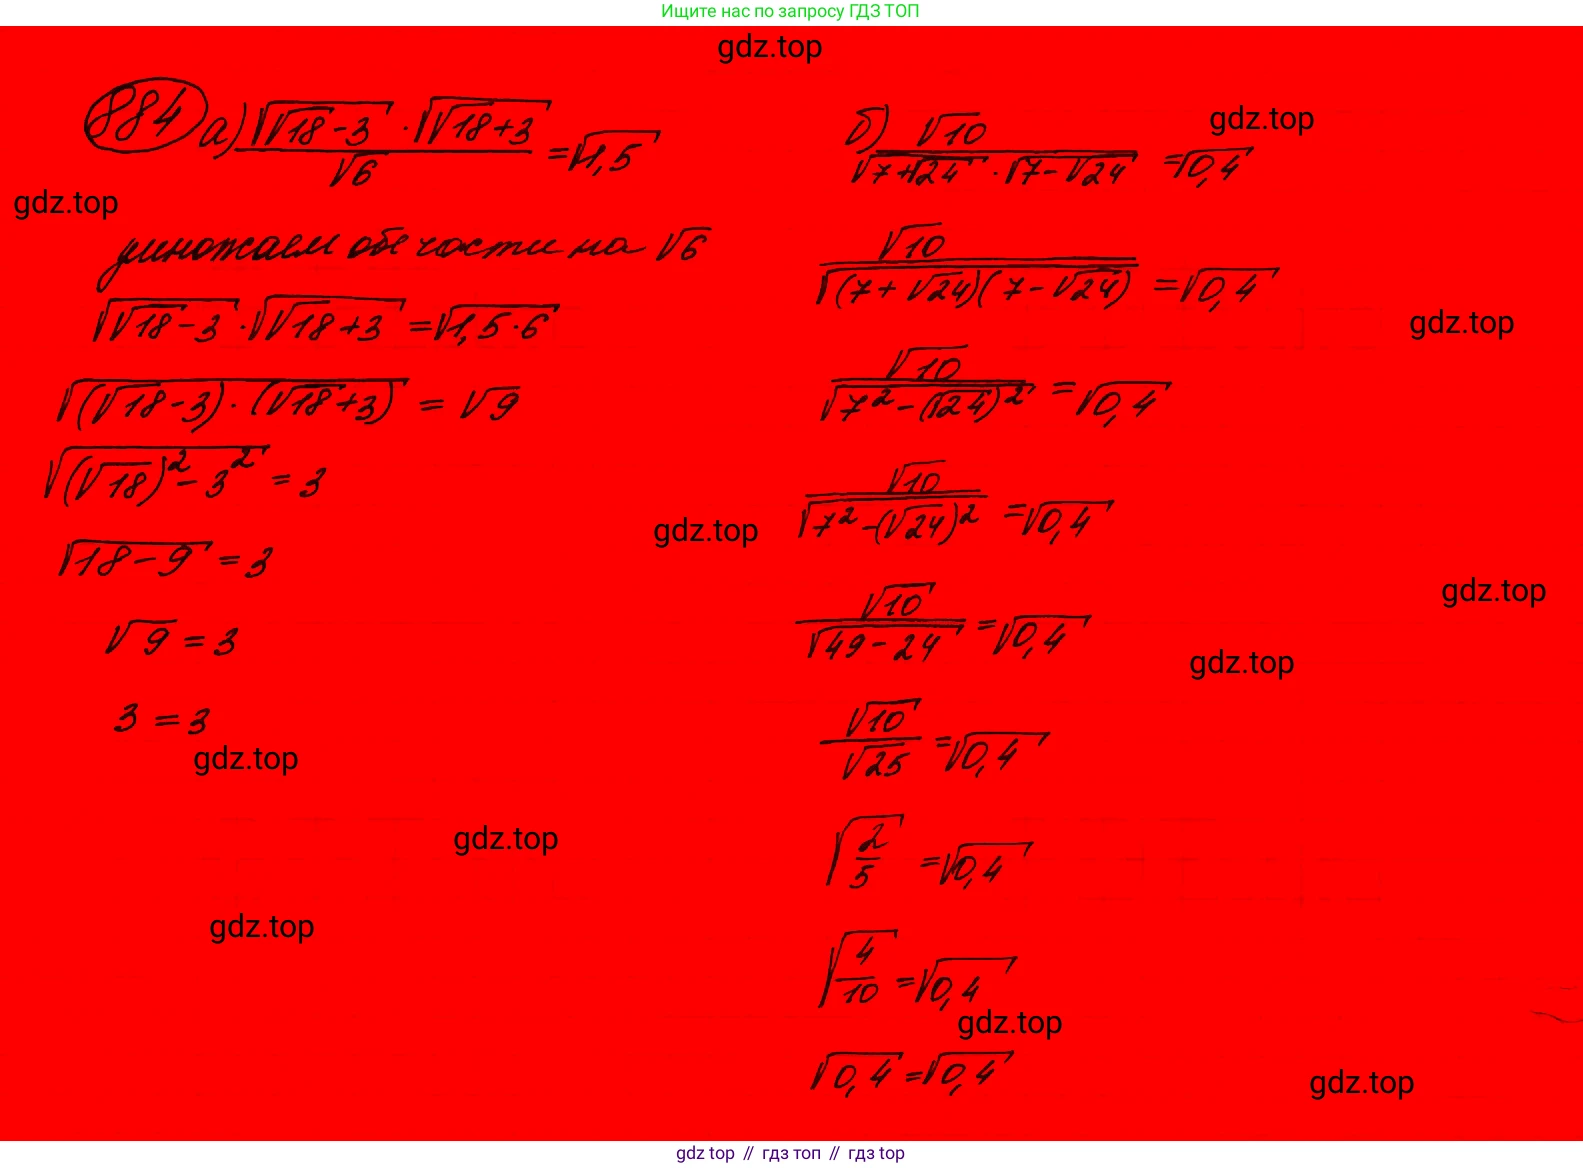 Ищите нас по запросу ГДЗ ТОП
gdz.top
884 а) √(√18-3) · √(√18+3) / √6 = √1,5
gdz.top
умножаем обе части на √6
√(√18-3) · √(√18+3) = √(1,5·6)
√((√18-3)·(√18+3)) = √9
√((√18)²-3²) = 3
√(18-9) = 3
√9 = 3
3 = 3
gdz.top
gdz.top
gdz.top
gdz.top
б) √10 / (√(7+√24) · √(7-√24)) = √0,4
gdz.top
√10 / √((7+√24)(7-√24)) = √0,4
gdz.top
√10 / √(7²-(√24)²) = √0,4
√10 / √(7²-(√24)²) = √0,4
gdz.top
√10 / √(49-24) = √0,4
gdz.top
√10 / √25 = √0,4
√(2/5) = √0,4
√(4/10) = √0,4
gdz.top
√0,4 = √0,4
gdz.top
gdz top // гдз топ // gdz top